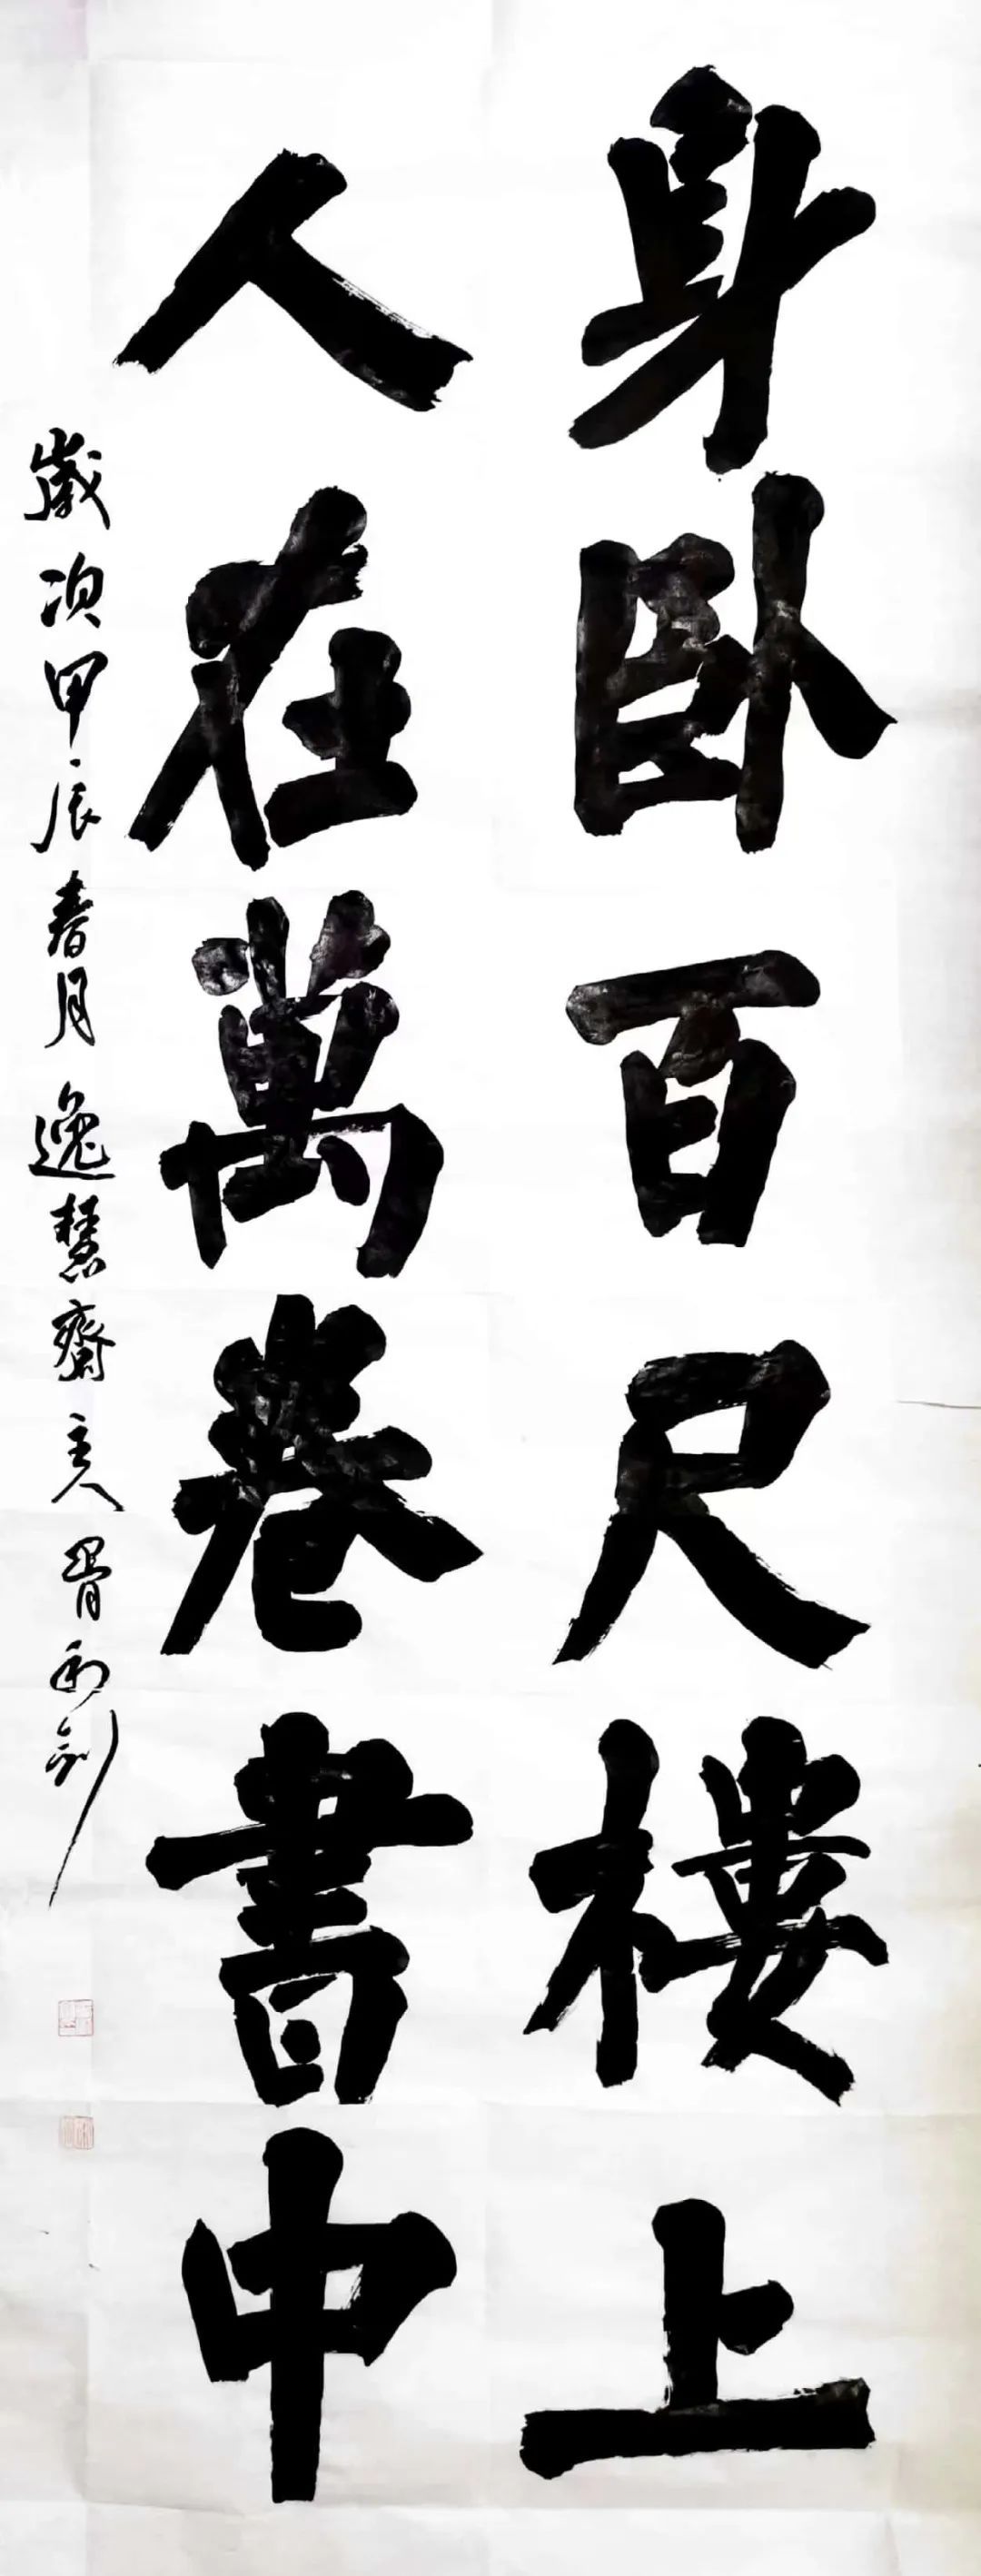 身卧百尺樓上
人在萬卷書中
歲次甲辰春月逸慧齋主人胥利剑